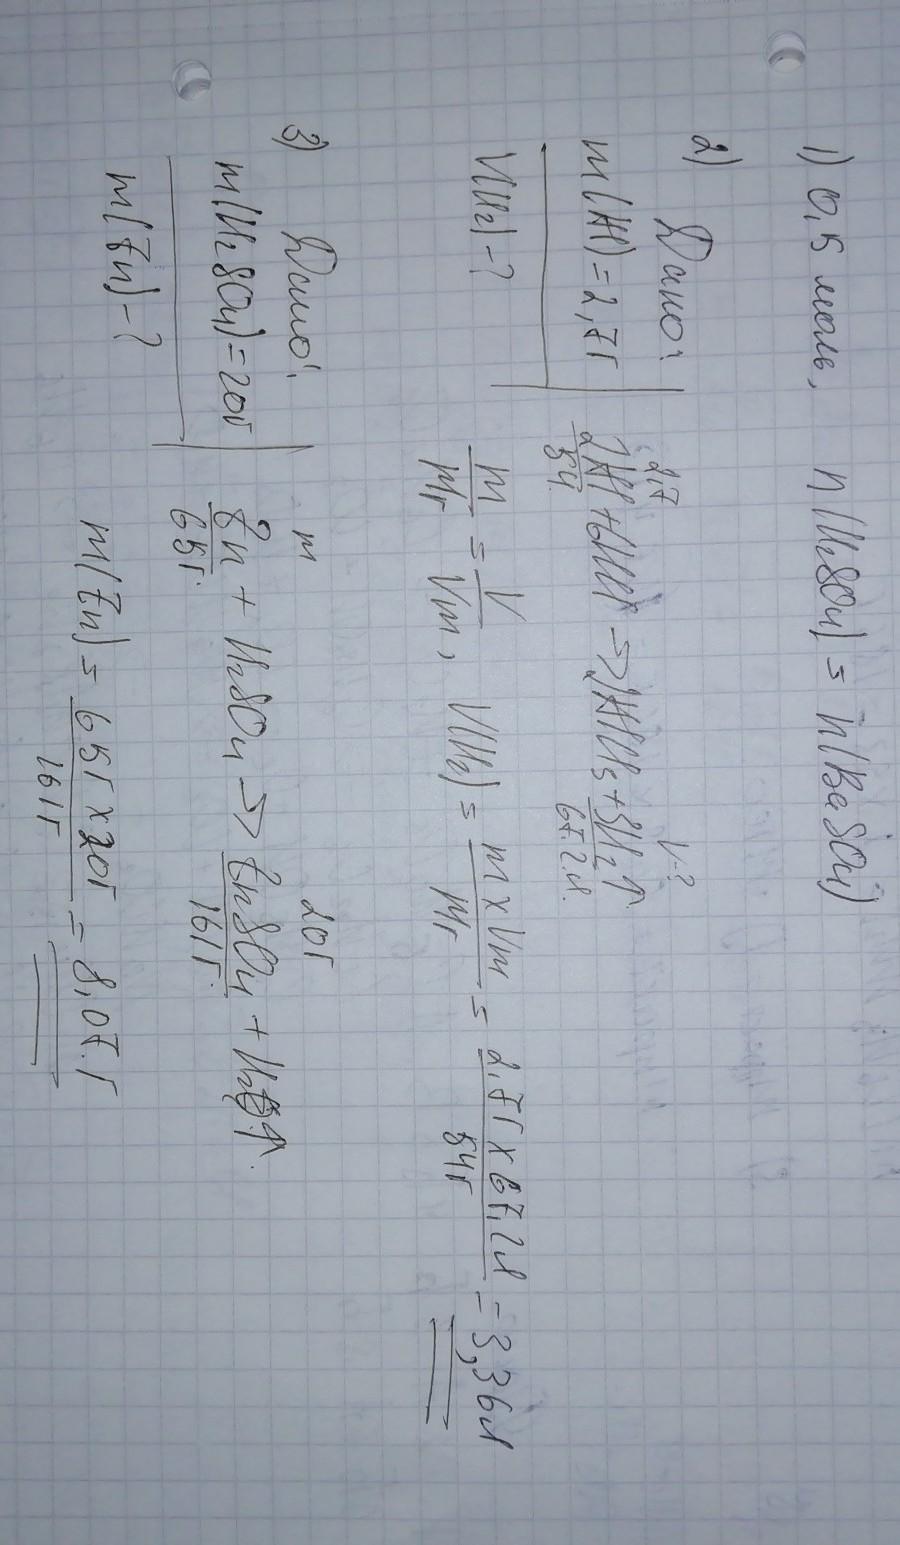 1) 0,5 моль, n(H₂SO₄) = n(BaSO₄)
2) Дано:
m(Al) = 2,7г
V(H₂) - ?
2,7 V-?
2Al + 6HCl → 2AlCl₃ + 3H₂↑
54 67,2л
m/Mr = V/Vm, V(H₂) = m x Vm/Mr = 2,7г x 67,2л/54г = 3,36л
3) Дано:
m(H₂SO₄) = 20г
m(Zn) - ?
m 20г
Zn + H₂SO₄ → ZnSO₄ + H₂↑.
65г. 161г.
m(Zn) = 65г x 20г/161г = 8,07.г